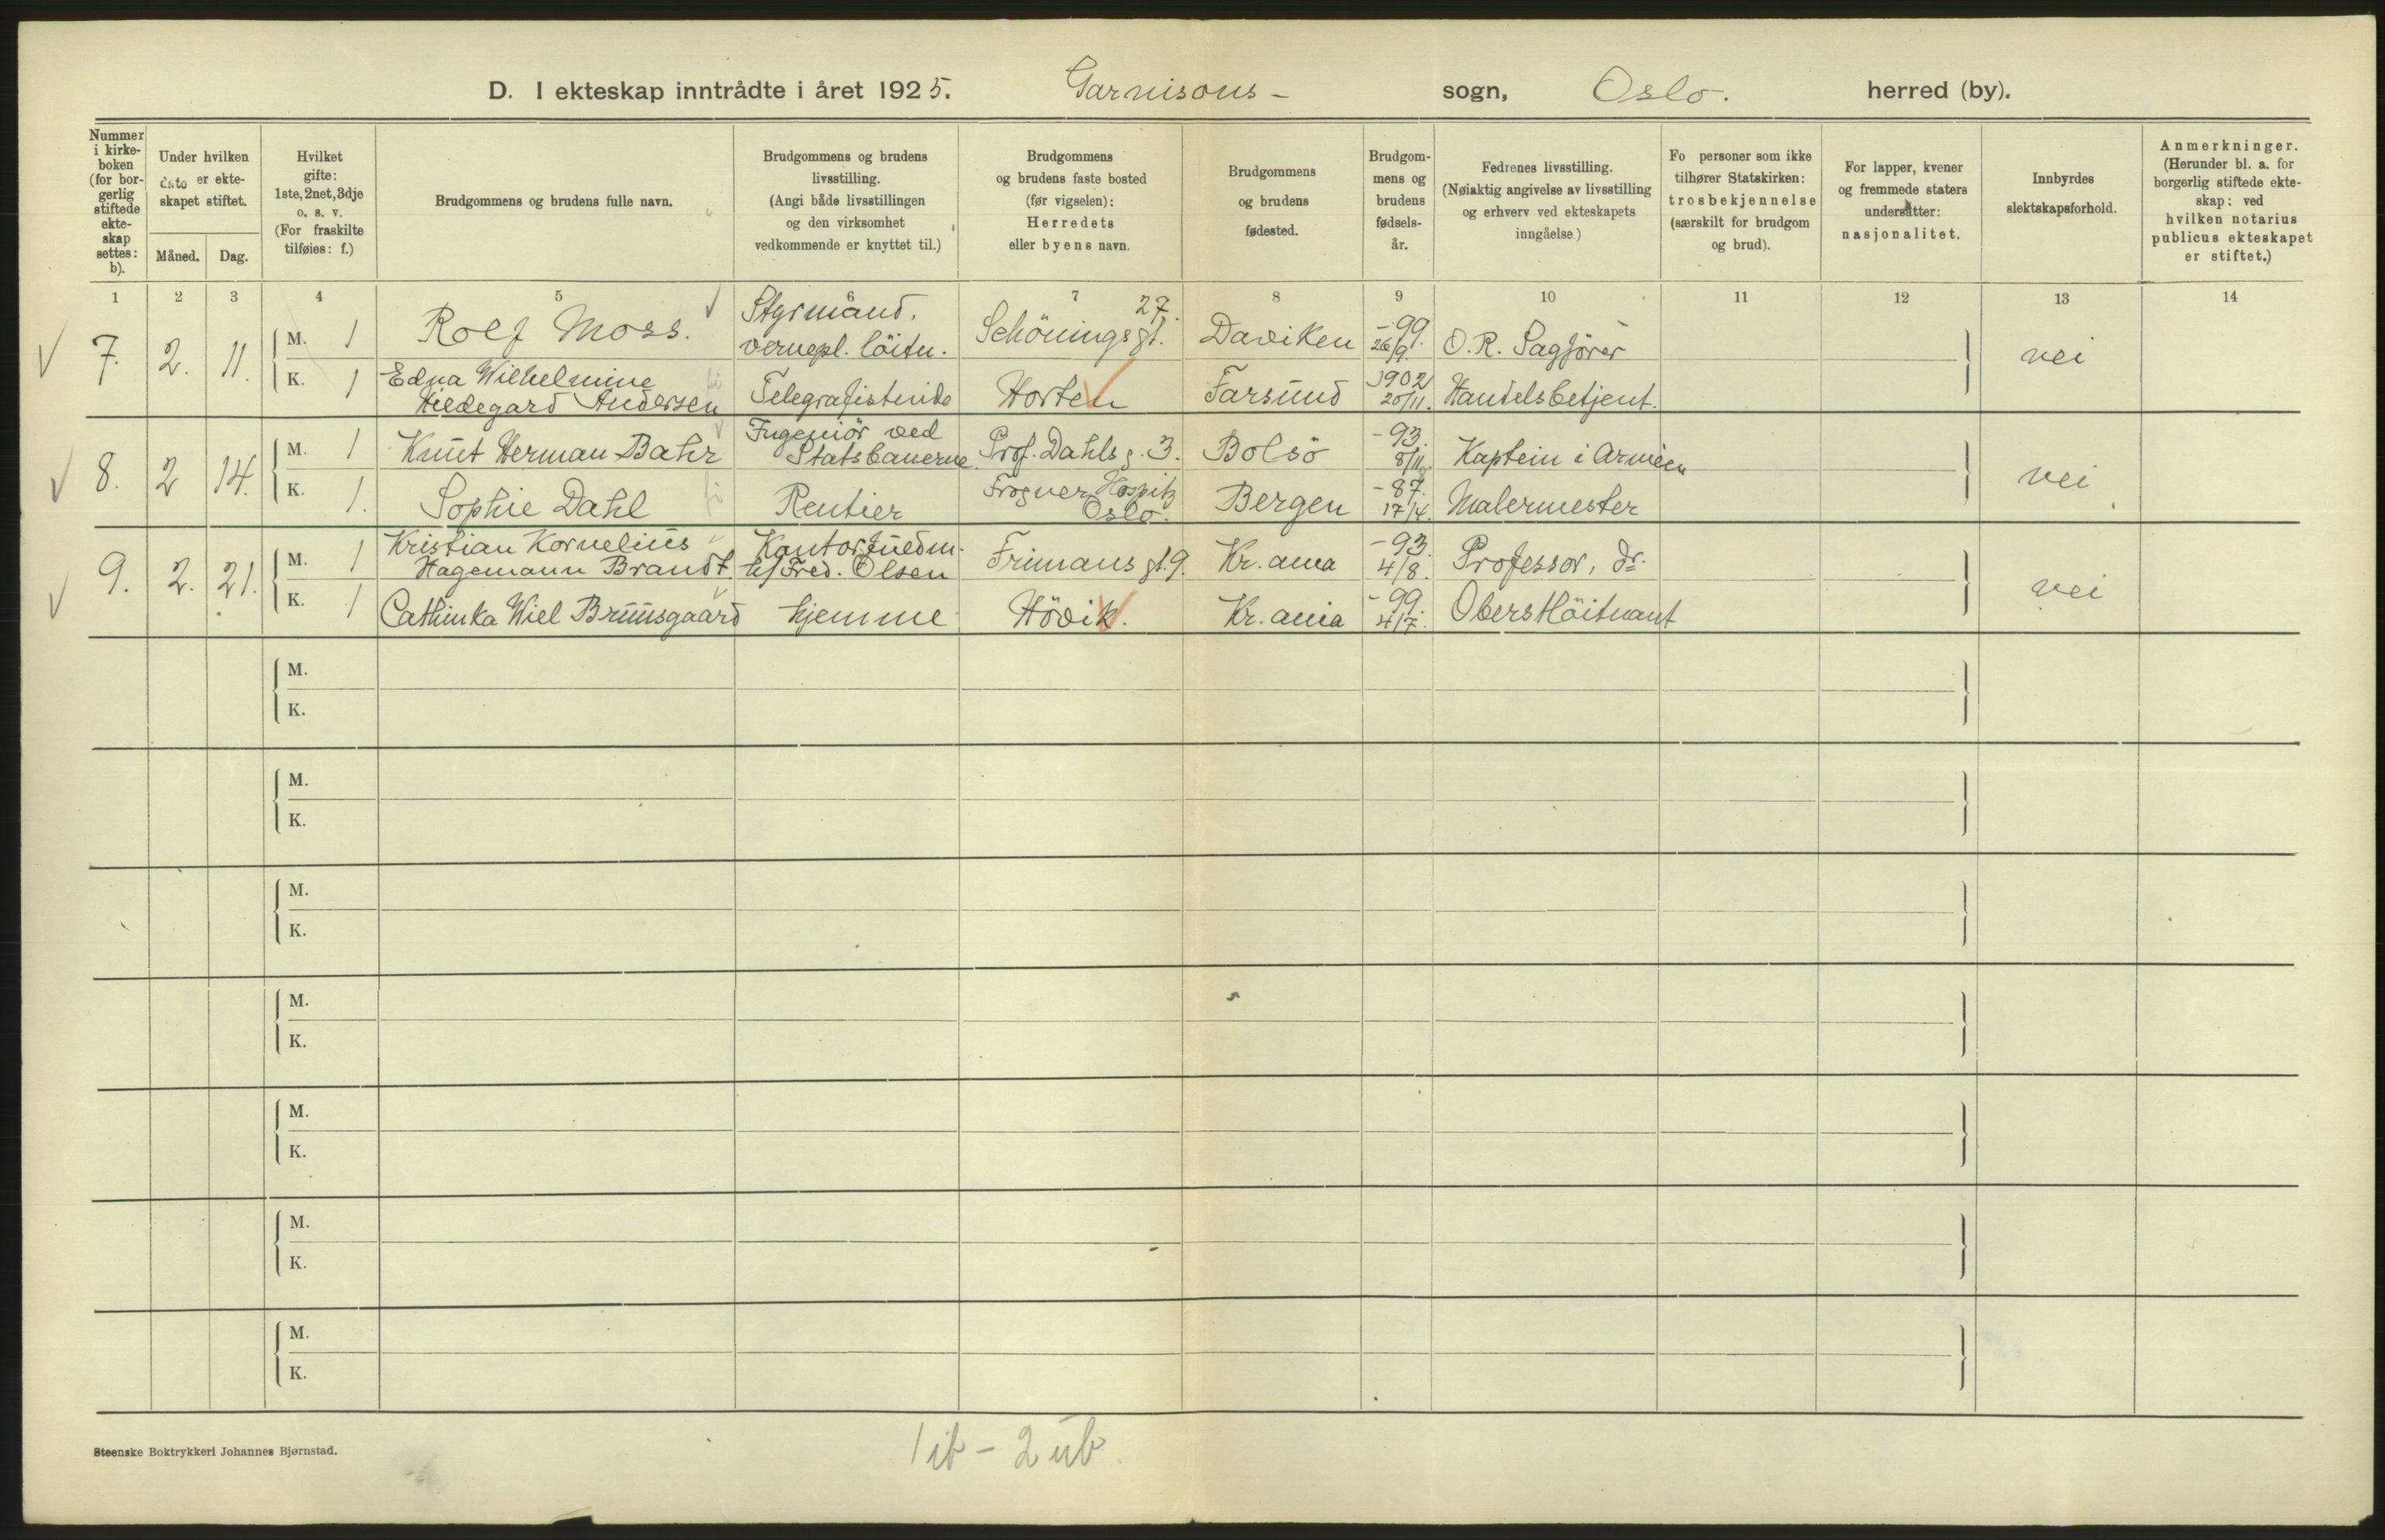 D. I ekteskap inntrådte i året 1925. Garnisons- sogn, Oslo. herred (by).
Nummer i kirke-boken (for bor-gerlig stiftede ekte-skap settes: b).
Under hvilken dato er ekte-skapet stiftet.
Måned. Dag.
Hvilket gifte: 1ste, 2net, 3dje o. s. v. (For fraskilte tilføies: f.)
Brudgommens og brudens fulle navn.
Brudgommens og brudens livsstilling. (Angi både livsstillingen og den virksomhet vedkommende er knyttet til.)
Brudgommens og brudens faste bosted (før vigselen): Herredets eller byens navn.
Brudgommens og brudens fødested.
Brudgom-mens og brudens fødsels-år.
Fedrenes livsstilling. (Nøiaktig angivelse av livsstilling og erhverv ved ekteskapets inngåelse.)
Fo personer som ikke tilhører Statskirken: trosbekjennelse (særskilt for brudgom og brud).
For lapper, kvener og fremmede staters undersåtter: nasjonalitet.
Innbyrdes slektskapsforhold.
Anmerkninger. (Herunder bl. a. for borgerlig stiftede ekte-skap: ved hvilken notarius publicus ekteskapet er stiftet.)
1 2 3 4 5 6 7 8 9 10 11 12 13 14
7. 2. 11. M. 1 Rolf Moss. Styrmand, vernepl. löitn. Schöningsgt. 27. Daviken -99. 26/9. O.R. Sagförer nei
K. 1 Edna Wilhelmine Hildegard Andersen Telegrafistinde Horten Farsund 1902 20/11. Handelsbetjent.
8. 2 14. M. 1 Knut Herman Bahr Ingeniör ved Statsbanerne Prof. Dahls g. 3. Bolsö -93. 8/11. Kaptein i Armeen nei
K. 1. Sophie Dahl Rentier Frogner Hospitz Oslo. Bergen -87. 17/4. Malermester
9. 2. 21. M. 1 Kristian Kornelius Hagemann Brandt. Kontorfuldm. h/ Fred. Olsen Frimans gt. 9. Kr.ania -93. 4/8. Professor, dr. nei
K. 1 Cathinka Wiel Bruusgaard hjemme Hövik. Kr.ania -99. 4/7. Oberstlöitnant
M.
K.
M.
K.
M.
K.
M.
K.
M.
K.
M.
K.
M.
K.
Steenske Boktrykkeri Johannes Bjørnstad.
1 ib - 2 ub.